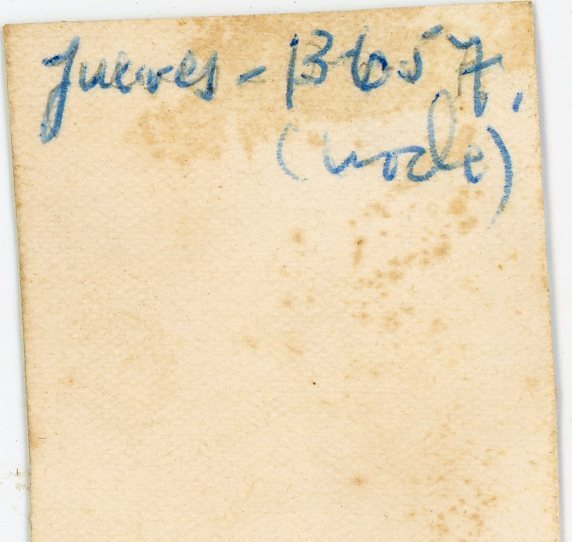 Jueves - 13 6 57.
(noche)